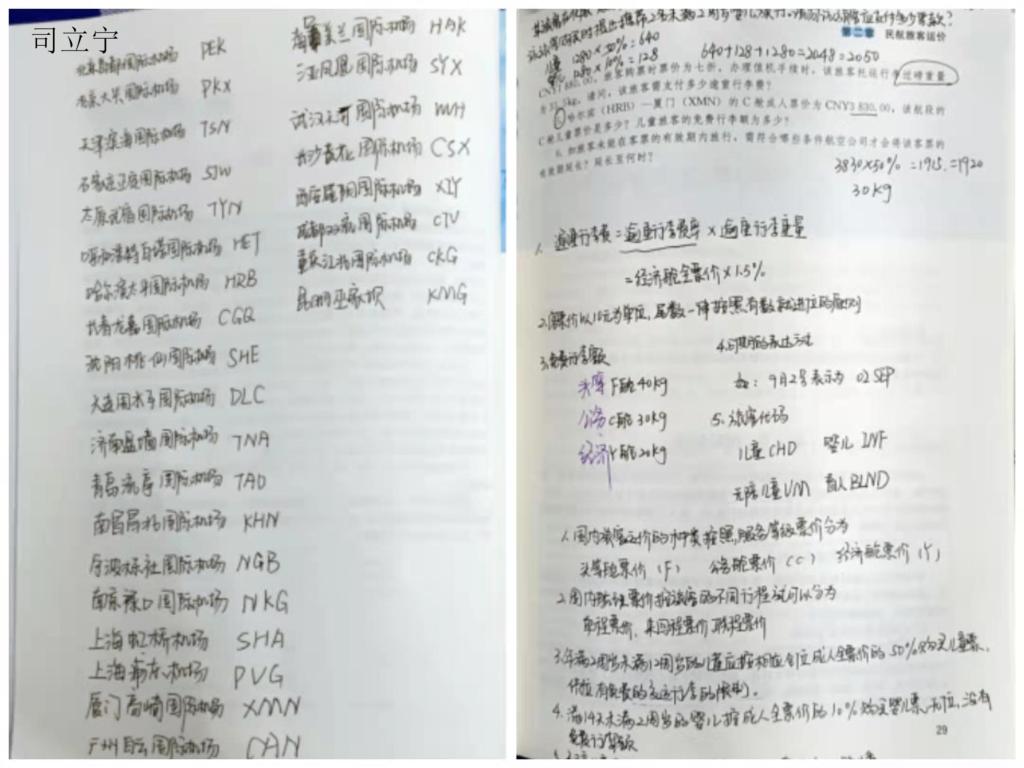 司立宁
北京首都国际机场 PEK
北京大兴国际机场 PKX
天津滨海国际机场 TSN
石家庄正定国际机场 SJW
太原武宿国际机场 TYN
呼和浩特白塔国际机场 HET
哈尔滨太平国际机场 HRB
长春龙嘉国际机场 CGQ
沈阳桃仙国际机场 SHE
大连周水子国际机场 DLC
济南遥墙国际机场 TNA
青岛流亭国际机场 TAO
南昌昌北国际机场 KHN
宁波栎社国际机场 NGB
南京禄口国际机场 NKG
上海虹桥机场 SHA
上海浦东机场 PVG
厦门高崎国际机场 XMN
广州白云国际机场 CAN
美兰国际机场 HAK
三亚凤凰国际机场 SYX
武汉天河国际机场 WUH
长沙黄花国际机场 CSX
西安咸阳国际机场 XIY
成都双流国际机场 CTU
重庆江北国际机场 CKG
昆明巫家坝 KMG
第二章 民航旅客运价
儿童 1280×50%=640
婴儿 1280×10%=128
640+128+1280=2048=2050
CNY1680.00,旅客购票时票价为七折,办理值机手续时,该旅客托运行李过磅重量
请问,该旅客需支付多少逾重行李费?
哈尔滨(HRB)—厦门(XMN)的C舱成人票价为CNY3 830.00,该航段的
C舱儿童票价是多少?儿童旅客的免费行李额为多少?
6. 如旅客未能在客票的有效期内旅行,需符合哪些条件航空公司才会将该客票的
有效期延长?延长至何时?
3830×50%=1915.=1920
30kg
1. 逾重行李费=逾重行李费率×逾重行李重量
=经济舱全票价×1.5%
2.票价以10元为单位,尾数一律按照有数就进位的原则
3.免费行李额
头等 F舱40kg
公务 C舱30kg
经济 Y舱20kg
4.日期的表达方式
如:9月2号表示为 02SEP
5.旅客代码
儿童CHD 婴儿INF
无陪儿童UM 盲人BLND
1.国内旅客运价的种类按照服务等级票价分为
头等舱票价(F) 公务舱票价(C) 经济舱票价(Y)
2.国内旅客票价按旅客的不同行程就可以分为
单程票价、来回程票价、联程票价
3.年满2周岁未满12周岁的儿童应按相应的成人全票价的50%购买儿童票、
4.满14天未满2周岁的婴儿按成人全票价的10%购买婴儿票,无座位,没有
免费行李额
29